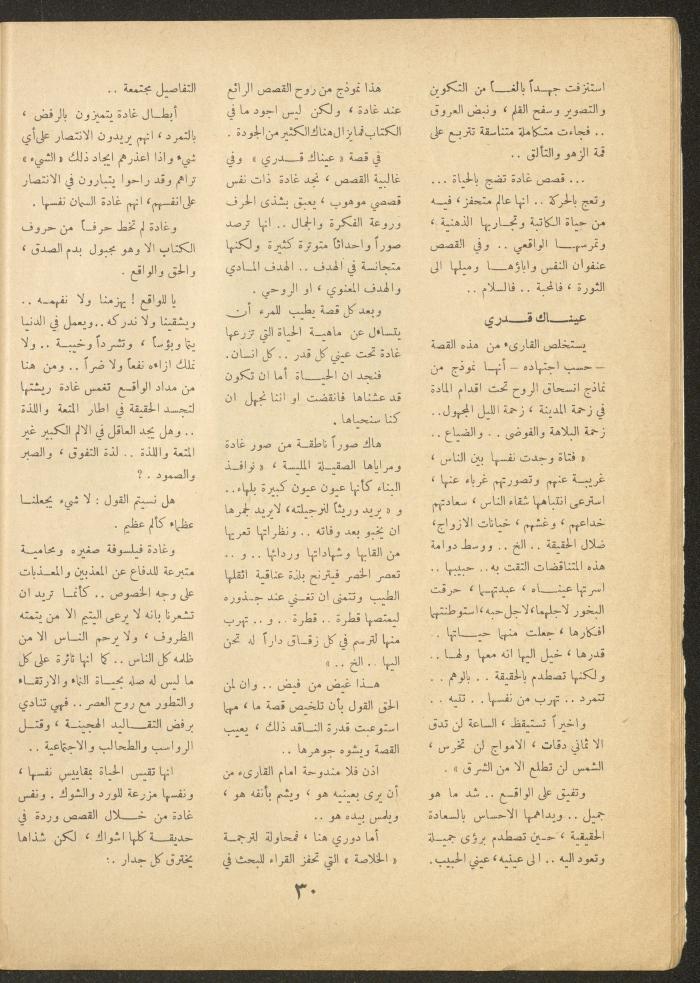 استنزفت جهداً بالغاً من التكوين
والتصوير وسفح القلم ، ونبض العروق
.. فجاءت متكاملة متناسقة تتربع على
قمة الزهو والتألق ..
... قصص غادة تضج بالحياة ...
وتعج بالحركة .. انها عالم متحفز ، فيه
من حياة الكاتبة وتجاربها الذهنية ،
وتمرسها الواقعي .. وفي القصص
عنفوان النفس واباؤها وميلها الى
الثورة ، فالمحبة .. فالسلام ..
عيناك قدري
يستخلص القارىء من هذه القصة
– حسب اجتهاده – أنها نموذج من
نماذج انسحاق الروح تحت اقدام المادة
في زحمة المدينة ، زحمة الليل المجهول..
زحمة البلاهة والفوضى .. والضياع ..
« فتاة وجدت نفسها بين الناس ،
غريبة عنهم وتصورتهم غرباء عنها ،
استرعى انتباهها شقاء الناس ، سعادتهم
خداعهم ، وغشهم ، خيانات الازواج،
ضلال الحقيقة .. الخ .. ووسط دوامة
هذه المتناقضات التقت به.. حبيبها ..
اسرتها عيناه ، عبدتهما ، حرقت
البخور لاجلهما،لاجل حبه،استوطنتهما
افكارها ، جعلت منهما حياتها ..
قدرها ، خيل اليها انه معها ولها ..
ولكنها تصطدم بالحقيقة .. بالوهم ..
تتمرد .. تهرب من نفسها .. تتيه ..
واخيراً تستيقظ ، الساعة لن تدق
الا ثماني دقات ، الامواج لن تخرس ،
الشمس لن تطلع الا من الشرق » .
وتفيق على الواقع .. شد ما هو
جميل .. ويداهمها الاحساس بالسعادة
الحقيقية ، حين تصطدم برؤى جميلة
وتعود اليه .. الى عينيه، عيني الحبيب.
هذا نموذج من روح القصص الرائع
عند غادة ، ولكن ليس اجود ما في
الكتاب فما يزال هناك الكثير من الجودة .
في قصة « عيناك قدري » وفي
غالبية القصص ، نجد غادة ذات نفس
قصصي موهوب ، يعبق بشذى الحرف
وروعة الفكرة والجمال .. انها ترصد
صوراً واحداثاً متوترة كثيرة ولكنها
متجانسة في الهدف .. الهدف المادي
والهدف المعنوي ، او الروحي .
وبعد كل قصة يطيب للمرء أن
يتساءل عن ماهية الحياة التي تزرعها
غادة تحت عيني كل قدر .. كل انسان.
فنجد ان الحياة أما ان تكون
قد عشناها فانقضت او اننا نجهل ان
كنا سنحياها .
هاك صوراً ناطقة من صور غادة
ومراياها الصقيلة المليسة ، « نوافذ
البناء كأنها عيون عيون كبيرة بلهاء..
و « يريد وريثاً لنرجيلته،لايريد لجمرها
ان يخبو بعد وفاته .. ونظراتها تعريها
من القابها وشهاداتها وردائها .. و ..
تعصر الخصر فيترنح بلذة عناقية اثقلها
الطيب وتتمنى ان تغني عند جذوره
ليمتصها قطرة .. قطرة .. و .. تهرب
منها لترسم في كل زقاق داراً له تحن
اليها .. الخ .. »
هذا غيض من فيض .. وان لمن
الحق القول بأن تلخيص قصة ما ، مهما
استوعبت قدرة الناقد ذلك ، يعيب
القصة ويشوه جوهرها ..
اذن فلا مندوحة امام القارىء من
أن يرى بعينيه هو ، ويشم بأنفه هو ،
ويلمس بيده هو ..
أما دوري هنا ، فمحاولة لترجمة
« الخلاصة » التي تحفز القراء للبحث في
التفاصيل مجتمعة ..
أبطال غادة يتميزون بالرفض ،
بالتمرد ، انهم يريدون الانتصار على أي
شيء واذا اعذرهم ايجاد ذلك « الشيء »
تراهم وقد راحوا يتبارون في الانتصار
على انفسهم، انهم غادة السمان نفسها .
وغادة لم تخط حرفاً من حروف
الكتاب الا وهو مجبول بدم الصدق ،
والحق والواقع .
يا للواقع ! يهزمنا ولا نفهمه ..
ويشقينا ولا ندركه ..ويعمل في الدنيا
يتما وبؤساً ، وتشرداً وخيبة .. ولا
نملك ازاءه نفعاً ولا ضراً .. ومن هنا
من مداد الواقع تغمس غادة ريشتها
لتجسد الحقيقة في اطار المتعة واللذة
.. وهل يجد العاقل في الالم الكبير غير
المتعة واللذة .. لذة التفوق ، والصبر
والصمود . ?
هل نسيتم القول : لا شيء يجعلنا
عظماء كألم عظيم .
وغادة فيلسوفة صغيره ومحامية
متبرعة للدفاع عن المعذبين والمعذبات
على وجه الخصوص .. كأنما تريد ان
تشعرنا بانه لا يرعى اليتيم الا من يتمته
الظروف ، ولا يرحم الناس الا من
ظلمه كل الناس .. كما انها ثائرة على كل
ما ليس له صله بحياة النماء والارتقاء
والتطور مع روح العصر .. فهي تنادي
برفض التقاليد الهجينة ، وقتل
الرواسب والطحالب والاجتماعية ..
انها تقيس الحياة بمقاييس نفسها ،
ونفسها مزرعة للورد والشوك . ونفس
غادة من خلال القصص وردة في
حديقة كلها اشواك ، لكن شذاها
يخترق كل جدار .:
٣٠